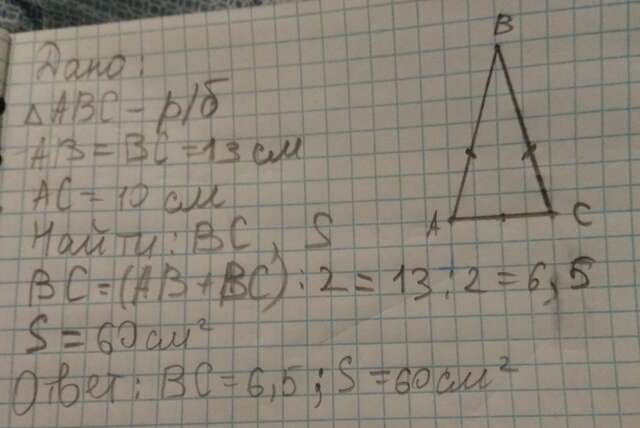 Дано:
△ABC - р/б
AB = BC = 13 см
AC = 10 см
Найти: BC, S
BC = (AB + BC) : 2 = 13 : 2 = 6,5
S = 60 см²
Ответ: BC = 6,5; S = 60 см²
B
A
C